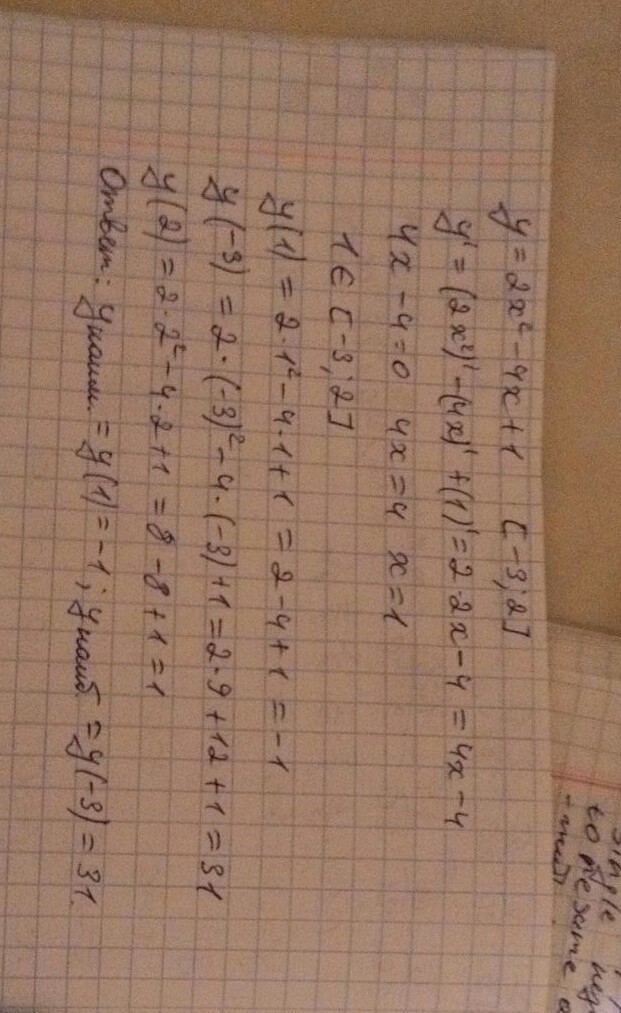 y = 2x² - 4x + 1 [-3; 2]
y' = (2x²)' - (4x)' + (1)' = 2·2x - 4 = 4x - 4
4x - 4 = 0 4x = 4 x = 1
1 ∈ [-3; 2]
y(1) = 2·1² - 4·1 + 1 = 2 - 4 + 1 = -1
y(-3) = 2·(-3)² - 4·(-3) + 1 = 2·9 + 12 + 1 = 31
y(2) = 2·2² - 4·2 + 1 = 8 - 8 + 1 = 1
Ответ: y наим. = y(1) = -1; y наиб = y(-3) = 31.
single
to